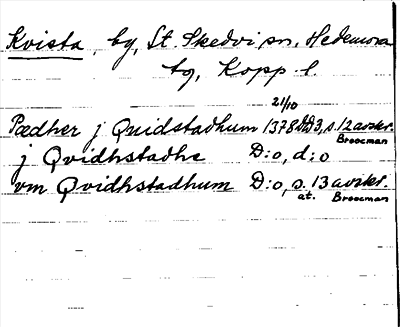 Kvista, by, St. Skedvi sn, Hedemora
tg, Kopp. l.
21/10
Pædher j Quidstadhum 1378 DD3, s. 12 avskr.
Broocman
j Qvidhstadhe D:o, d:o
vm Qvidhstadhum D:o, s. 13 avskr.
at. Broocman